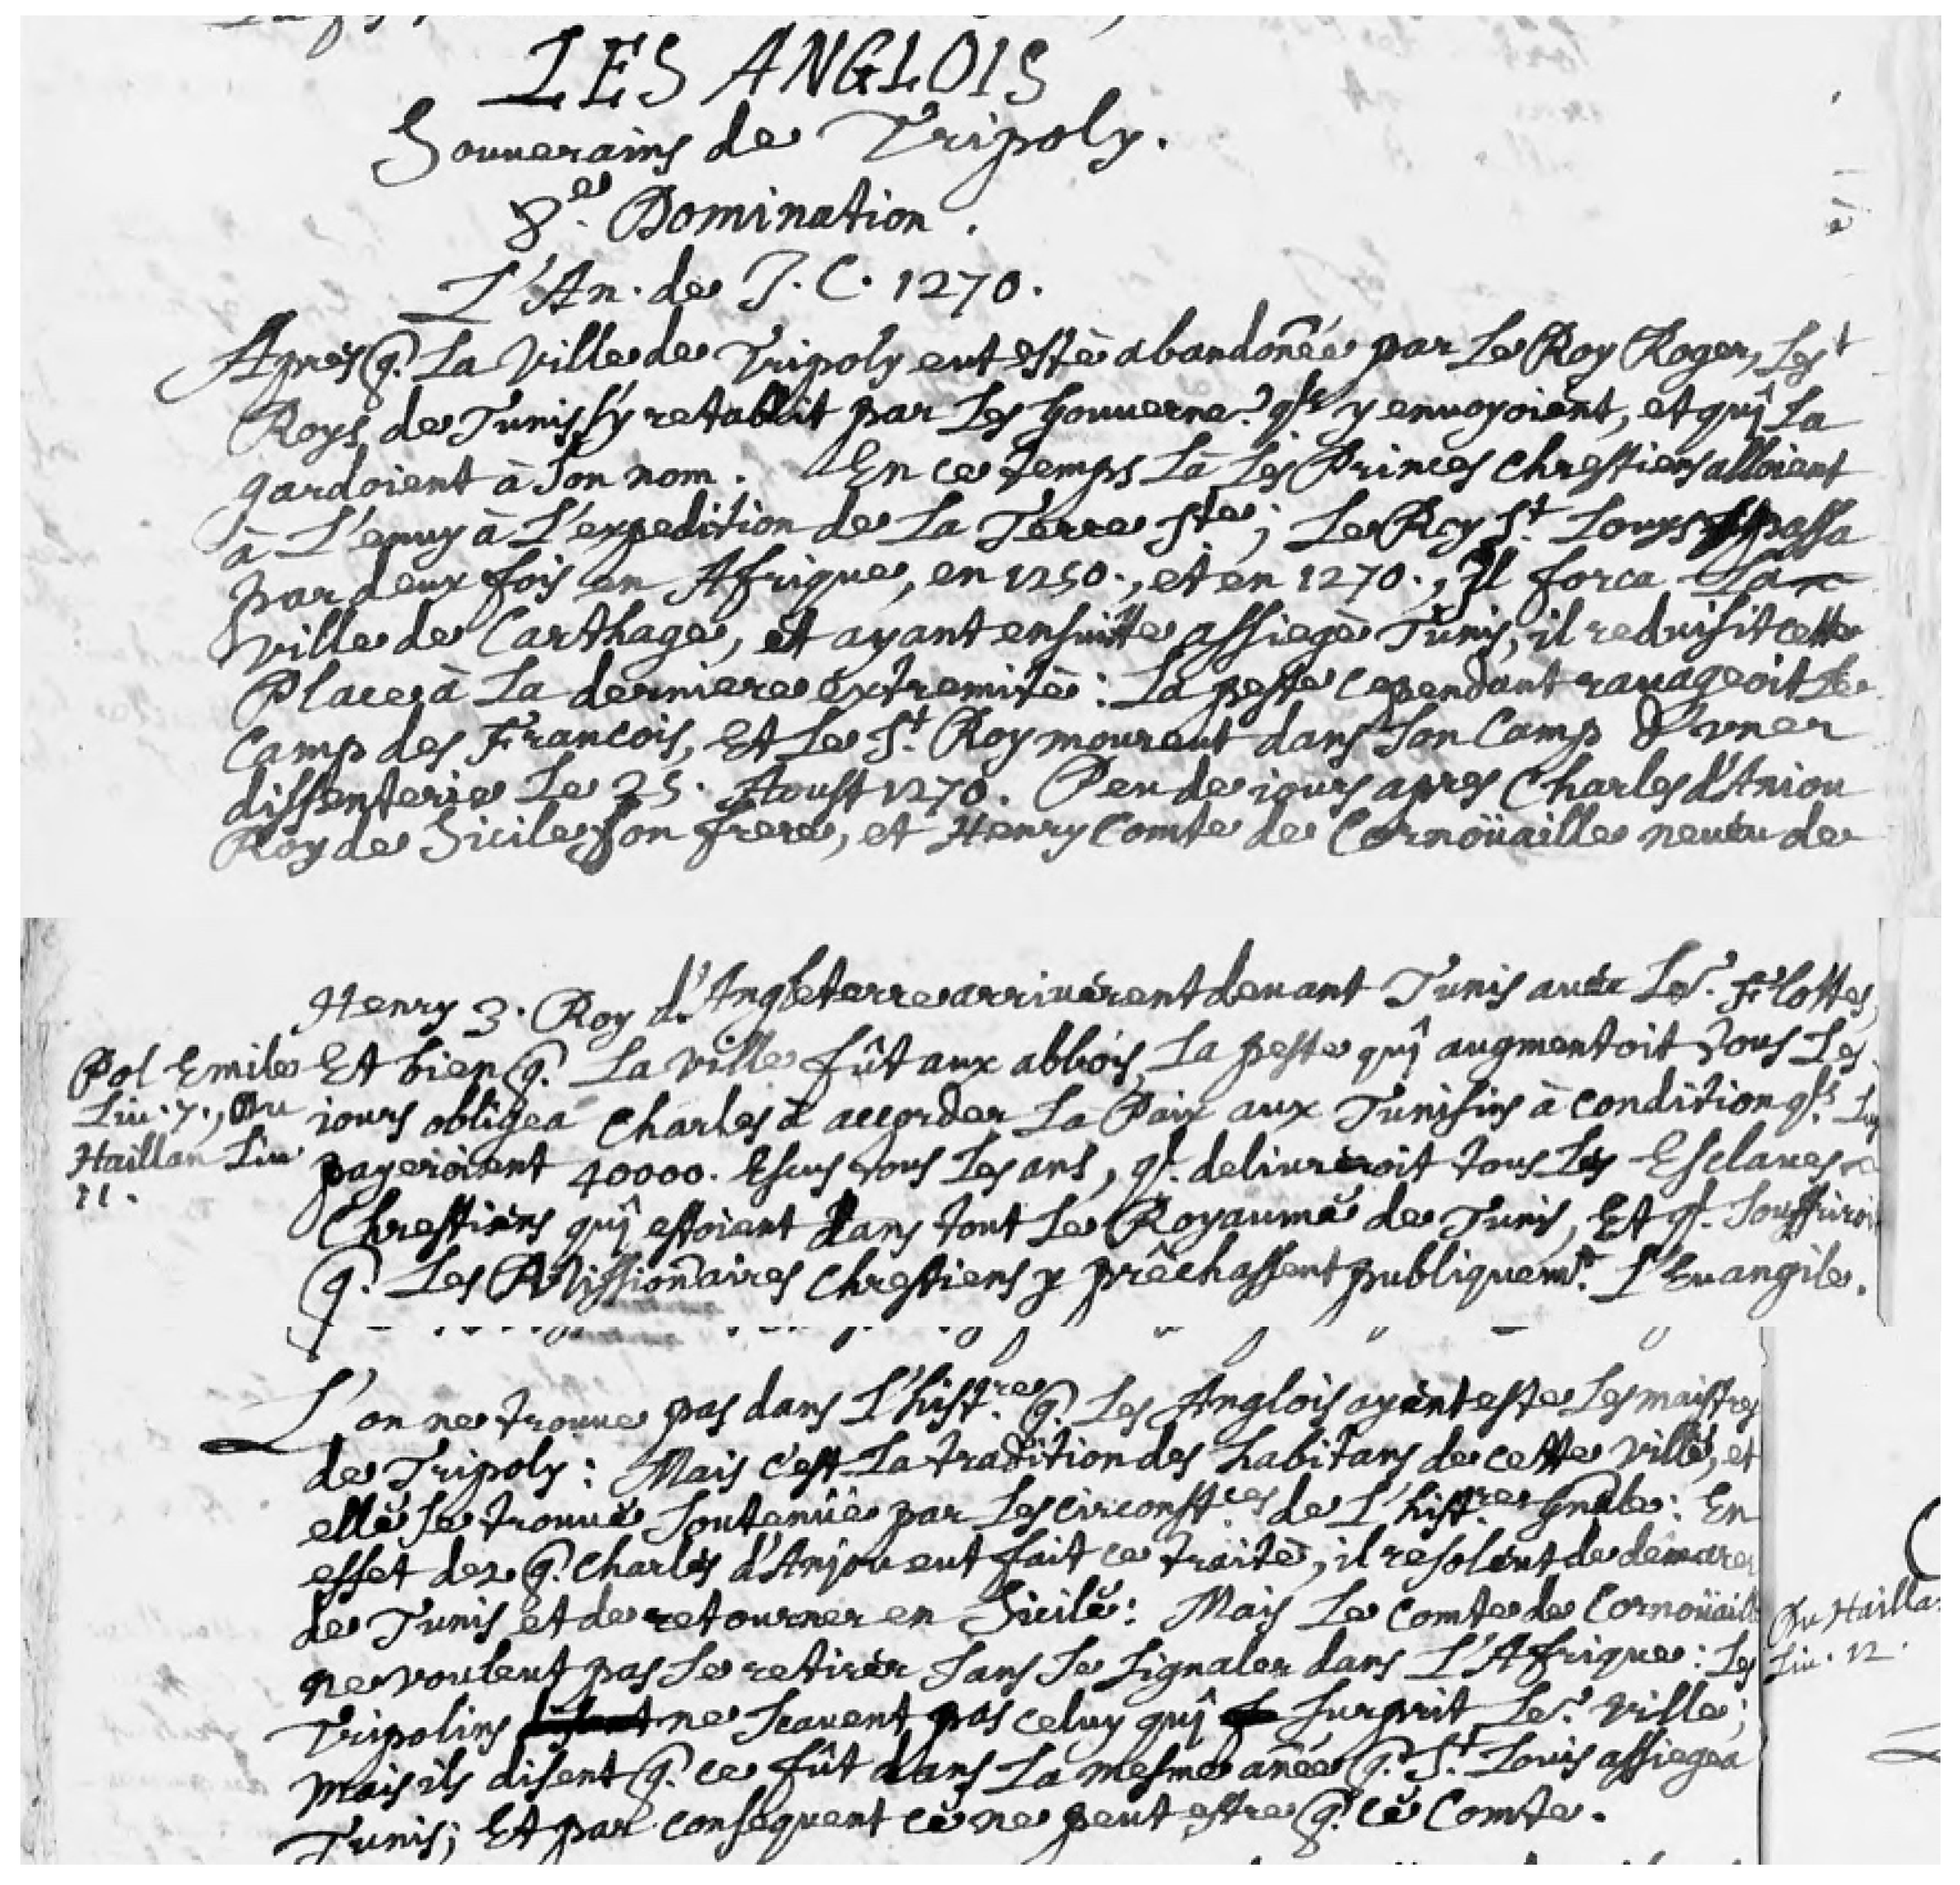 LES ANGLOIS
Souuerains de Tripoly.
8.e Domination.
L'An. de J. C. 1270.
Apres q̃. La Ville de Tripoly eut estè abandoñée par Le Roy Roger, Les
Roys de Tunis s'y retablit par Les Gouuerne.rs qls y enuoyoient, et quî La
gardoient à son nom. En ce temps Là Les Princes Chrestiens alloient
à L'enuy à L'expedition de La Terre Ste; Le Roy St. Louys passa
par deux fois en Afrique, en 1250., et en 1270., Il forca La
Ville de Carthage, et ayant ensuitte assiegè Tunis, il reduisit cette
Place à La derniere extremitè: La peste cependant rauageoit Le
Camp des Francois, Et Le St. Roy mourut dans son Camp d'vne
dissenterie Le 25. Aoust 1270. Peu de iours apres Charles d'Aniou
Roy de Sicile son frere, et Henry Comte de Cornoüaille neueu de
Henry 3. Roy d'Angleterre arriuérent deuant Tunis auec Le.r Flottes,
Pol Emile
Liu. 7., Du
Haillan Liu
11.
Et bien q̃. La Ville fût aux abbois, La peste quî augmentoit tous Les
iours obligea Charles à accorder La Paix aux Tunisins à condition qls. Luy
payeroient 40000. Escus tous Les ans, ql. deliureroit tous Les Esclaues
Chrestiens quî estoient dans tout Le Royaume de Tunis, Et ql. souffriroit
q̃. Les Missioñaires Chrestiens y prêchassent publiquemt. L'Euangile.
L'on ne trouue pas dans L'hist.re q̃. Les Anglois ayent este Les maistres
de Tripoly: Mais c'est La tradition des habitans de cette Ville, et
elle se trouue soutenüe par Les circonst.ces de L'hist.re Gñale: En
effet dez q̃. Charles d'Anjou eut fait ce traitè, il resolut de démarer
de Tunis et de retourner en Sicile: Mais Le Comte de Cornoüaille
Du Hailla.
Liu. 12.
ne voulut pas se retirer sans se signaler dans L'Afrique: Les
Tripolins ne scauent pas celuy quî surprit Le.r Ville;
mais ils disent q̃. ce fût dans La mesme añée q̃. St. Louis assiegea
Tunis; Et par consequent ce ne peut estre q̃. ce Comte.